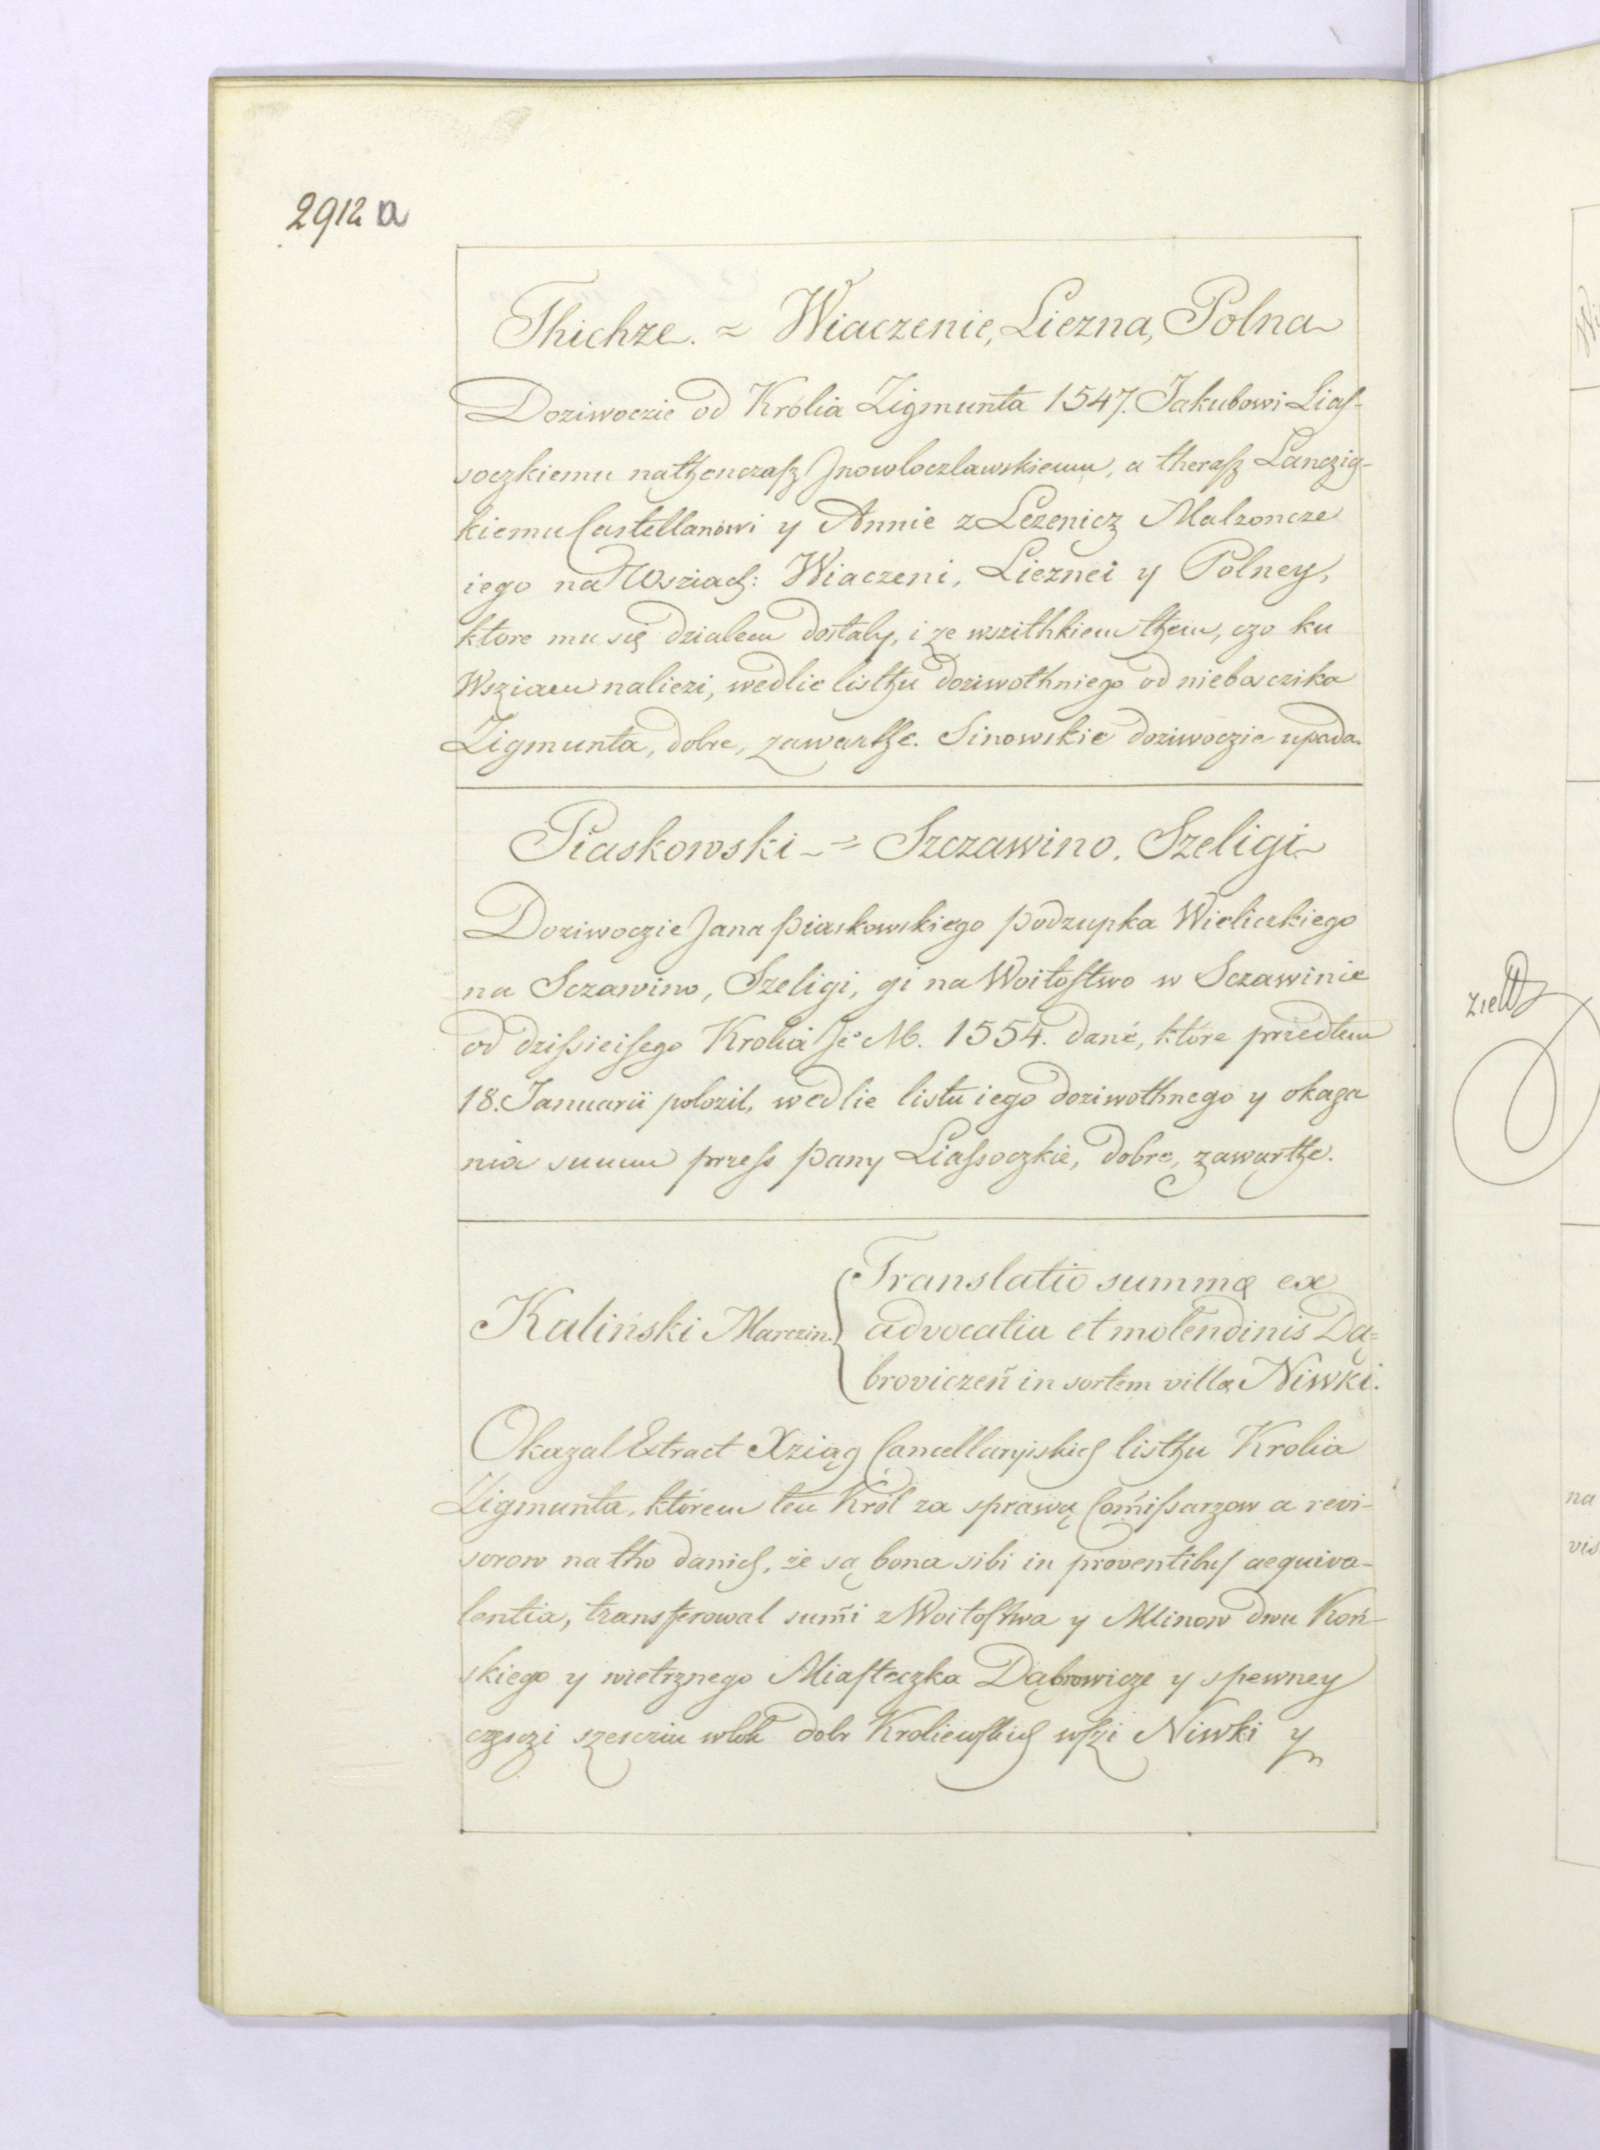 2912 a
Thichze. ~ Wiaczenie, Liezna, Polna
Doziwoczie od Królia Zigmunta 1547. Jakubowi Lias-
soczkiemu nathenczasz Jnowloczlawskiemu, a therasz Lanczig-
kiemu Castellanowi y Annie z Lezenicz Malzoncze
iego na Wsziach: Wiaczeni, Lieznei y Polney,
ktore mu się dzialem dostaly, i ze wszithkiem them, czo ku
Wsziam naliezi, wedlie listhu doziwothniego od nieboszczika
Zigmunta, dobre, zawarthe. Sinowskie doziwoczie upada.
Piaskowski ~ Szczawino. Szeligi
Doziwoczie Jana Piaskowskiego Podzupka Wielickiego
na Sczawino, Szeligi, gi na Woitostwo w Sczawinie
od dzissieisego Krolia Je M. 1554. dané, ktore przedtem
18. Januarii polozil, wedlie listu iego doziwothnego y okaza
nia summ przess Pany Liassoczkie, dobre, zawarthe.
Kaliński Marczin.
Translatio summæ ex
advocatia et molendinis Dą=
broviczeń in sortem villæ Niwki.
Okazal Extract Xziąg Cancellaryiskich listhu Krolia
Zigmunta, którem ten Król za sprawą Comissarzow a revi-
sorow na tho danich, że są bona sibi in proventibus aequiva-
lentia, transferowal sumi z Woitostwa y Mlinow dwu Koń-
skiego y wietrznego Miasteczka Dąbrowicze y spewney
częsczi szesczin wlok dobr Kroliewskich wszi Niwki y